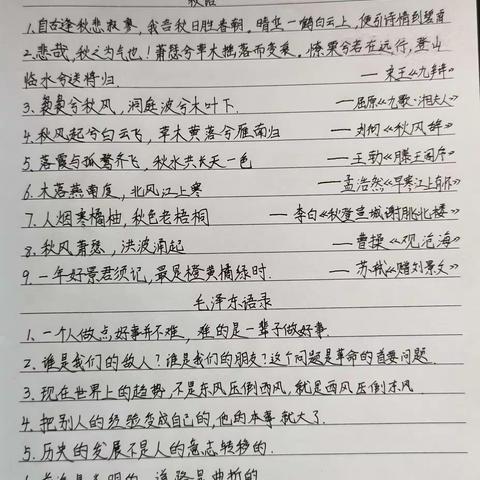 1.自古逢秋悲寂寥，我言秋日胜春朝。晴空一鹤白云上，便引诗情到碧霄
2.悲哉，秋之为气也！萧瑟兮草木摇落而变衰。憭栗兮若在远行，登山
临水兮送将归. —宋玉《九辩》
3.袅袅兮秋风，洞庭波兮木叶下. —屈原《九歌·湘夫人》
4.秋风起兮白云飞，草木黄落兮雁南归 —刘彻《秋风辞》
5.落霞与孤鹜齐飞，秋水共长天一色 —王勃《滕王阁序》
6.木落燕南度，北风江上寒 —孟浩然《早寒江上有怀》
7.人烟寒橘柚，秋色老梧桐 —李白《秋登宣城谢朓北楼》
8.秋风萧瑟，洪波涌起 —曹操《观沧海》
9.一年好景君须记，最是橙黄橘绿时. —苏轼《赠刘景文》
毛泽东语录
1.一个人做点好事并不难，难的是一辈子做好事.
2.谁是我们的敌人？谁是我们的朋友？这个问题是革命的首要问题.
3.现在世界上的趋势，不是东风压倒西风，就是西风压倒东风.
4.把别人的经验变成自己的，他的本事就大了.
5.历史的发展不是人的意志转移的.